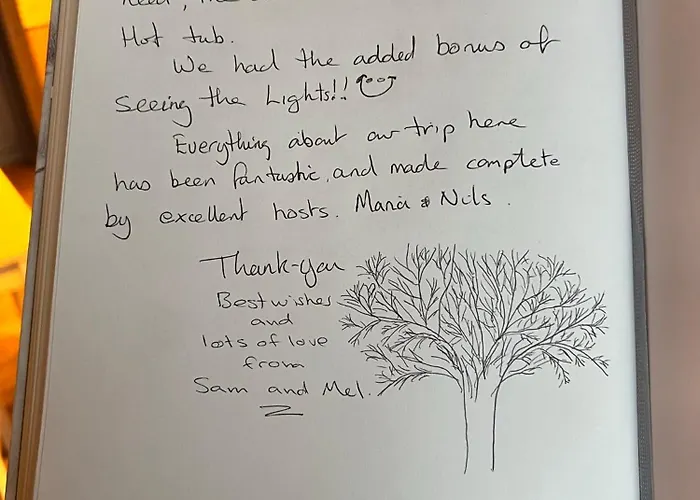 Hot tub.
We had the added bonus of
seeing the Lights!!
Everything about our trip here
has been fantastic, and made complete
by excellent hosts. Maria & Nils.
Thank-you
Best wishes
and
lots of love
from
Sam and Mel.